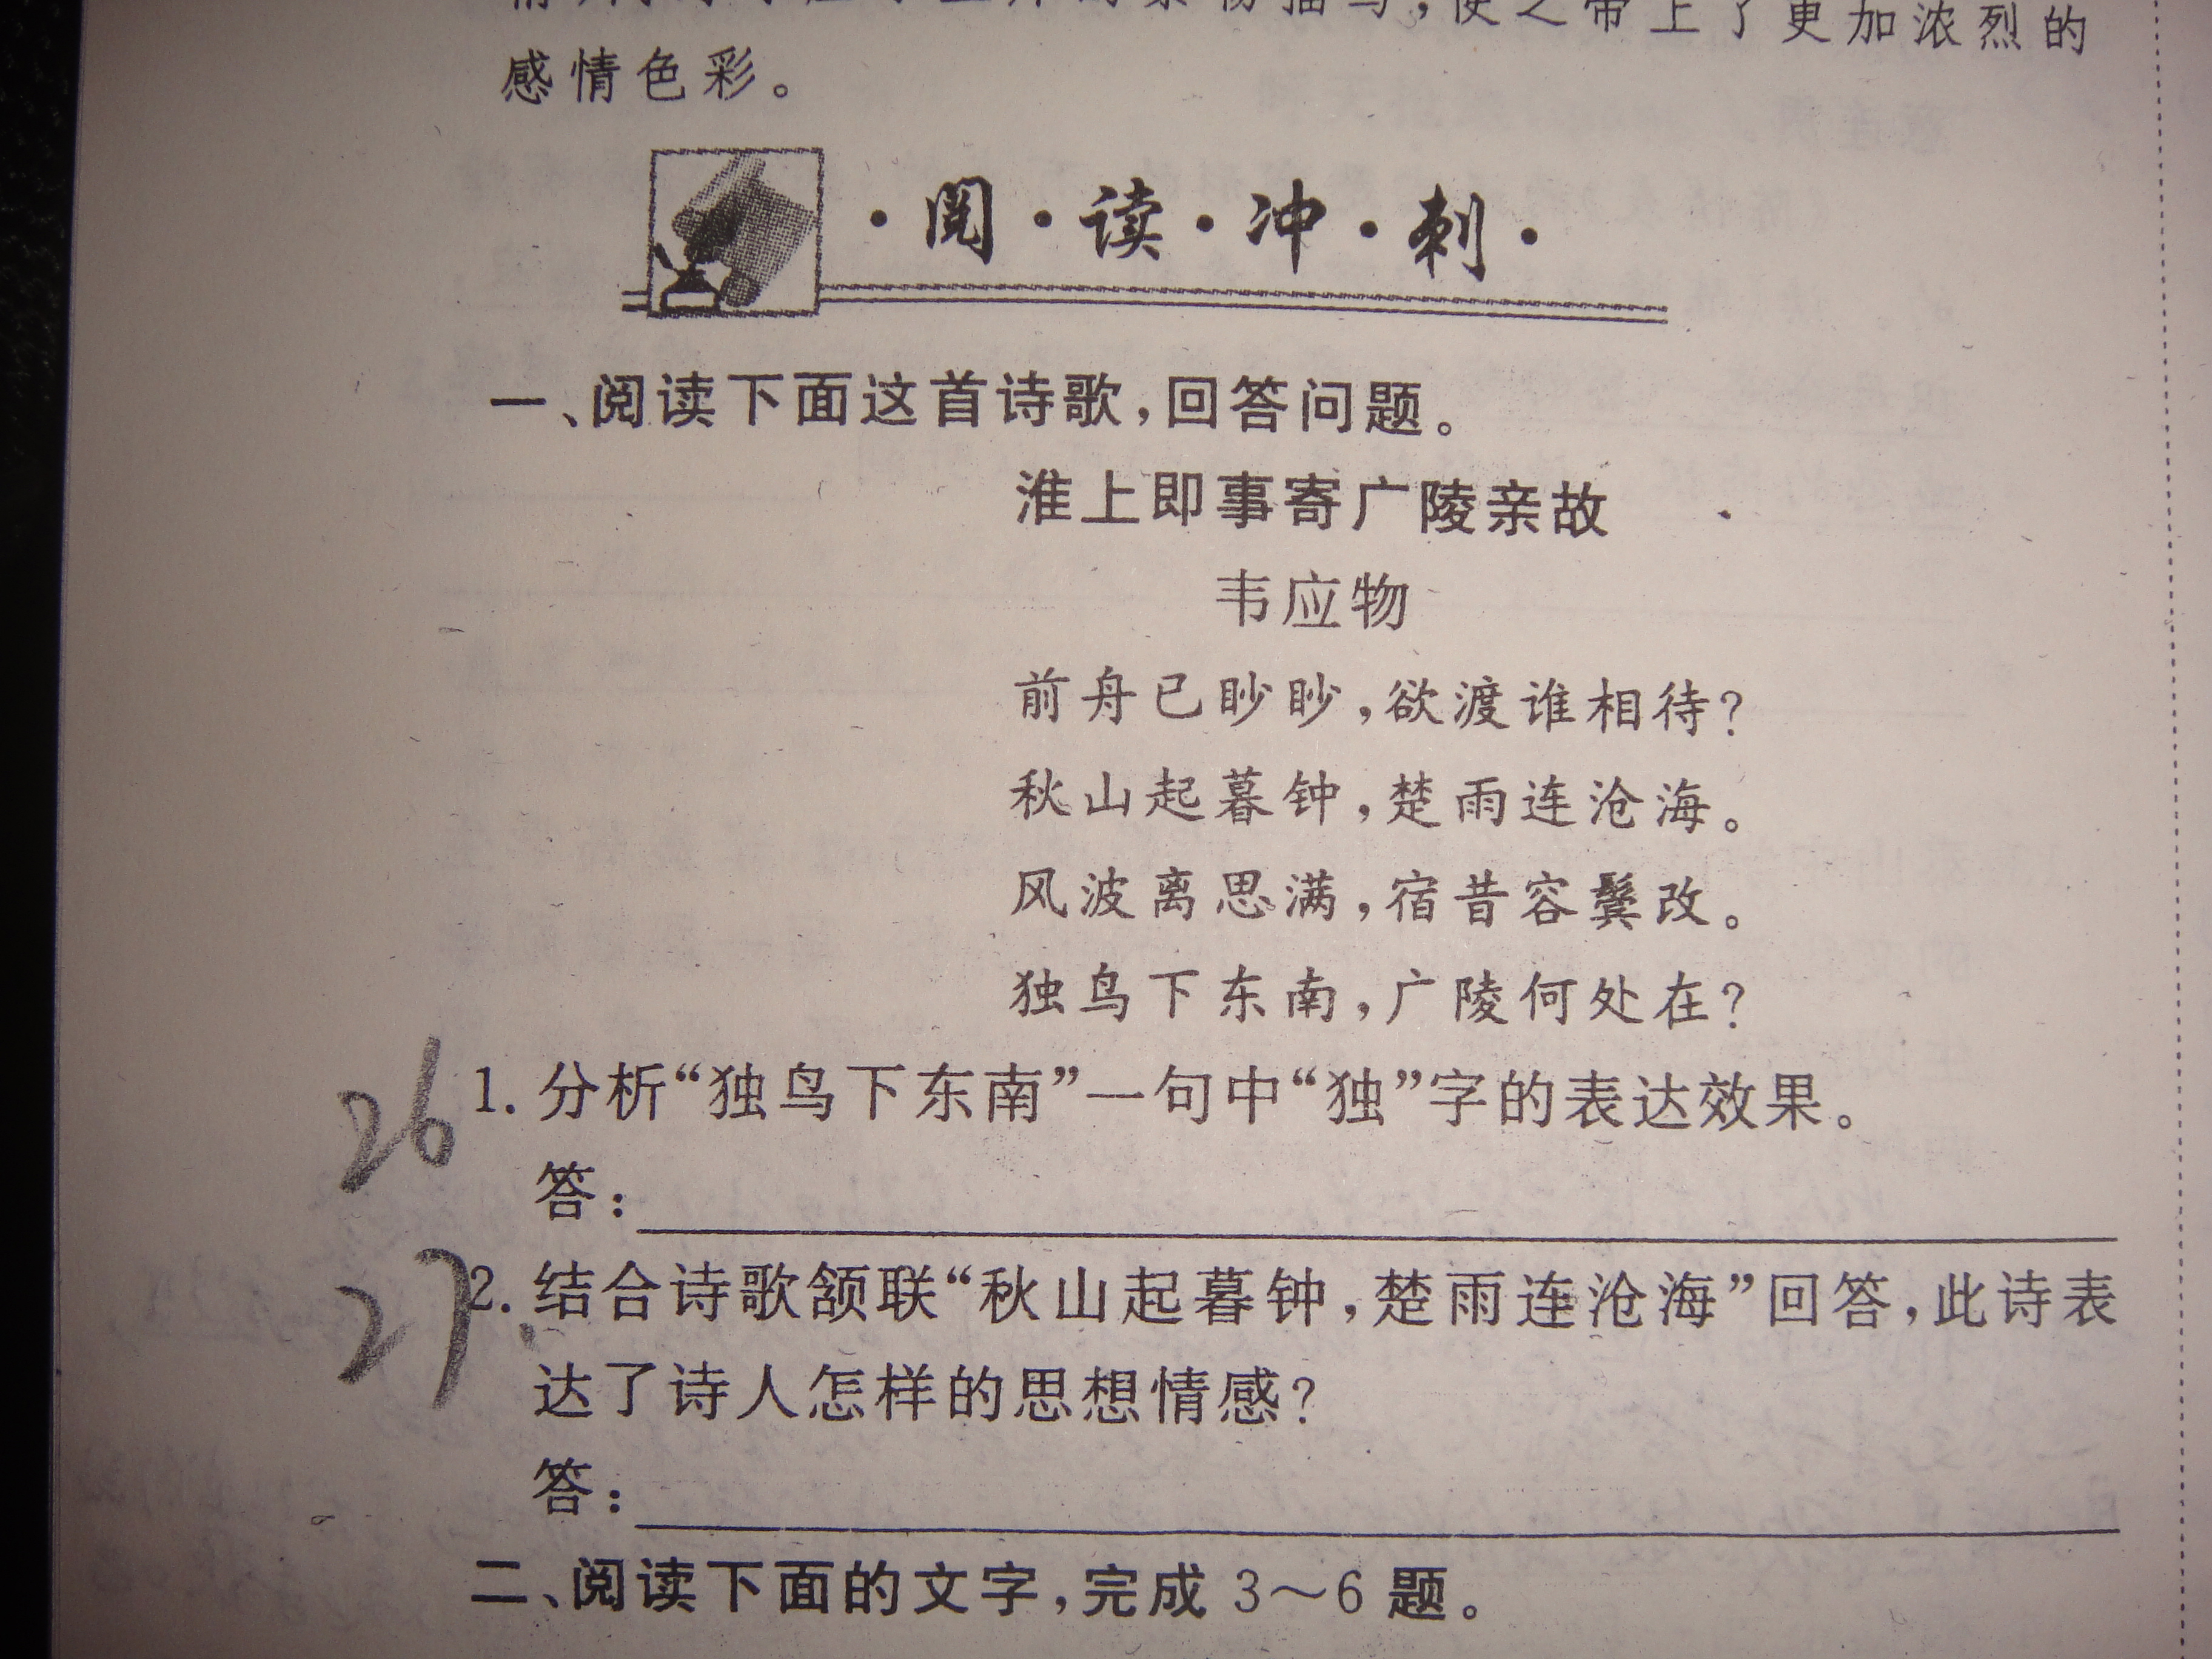 使之带上了更加浓烈的
感情色彩。
·阅·读·冲·刺·
一、阅读下面这首诗歌,回答问题。
淮上即事寄广陵亲故
韦应物
前舟已眇眇,欲渡谁相待?
秋山起暮钟,楚雨连沧海。
风波离思满,宿昔容鬓改。
独鸟下东南,广陵何处在?
26 1. 分析“独鸟下东南”一句中“独”字的表达效果。
答:
27 2. 结合诗歌颔联“秋山起暮钟,楚雨连沧海”回答,此诗表
达了诗人怎样的思想情感?
答:
二、阅读下面的文字,完成 3～6 题。